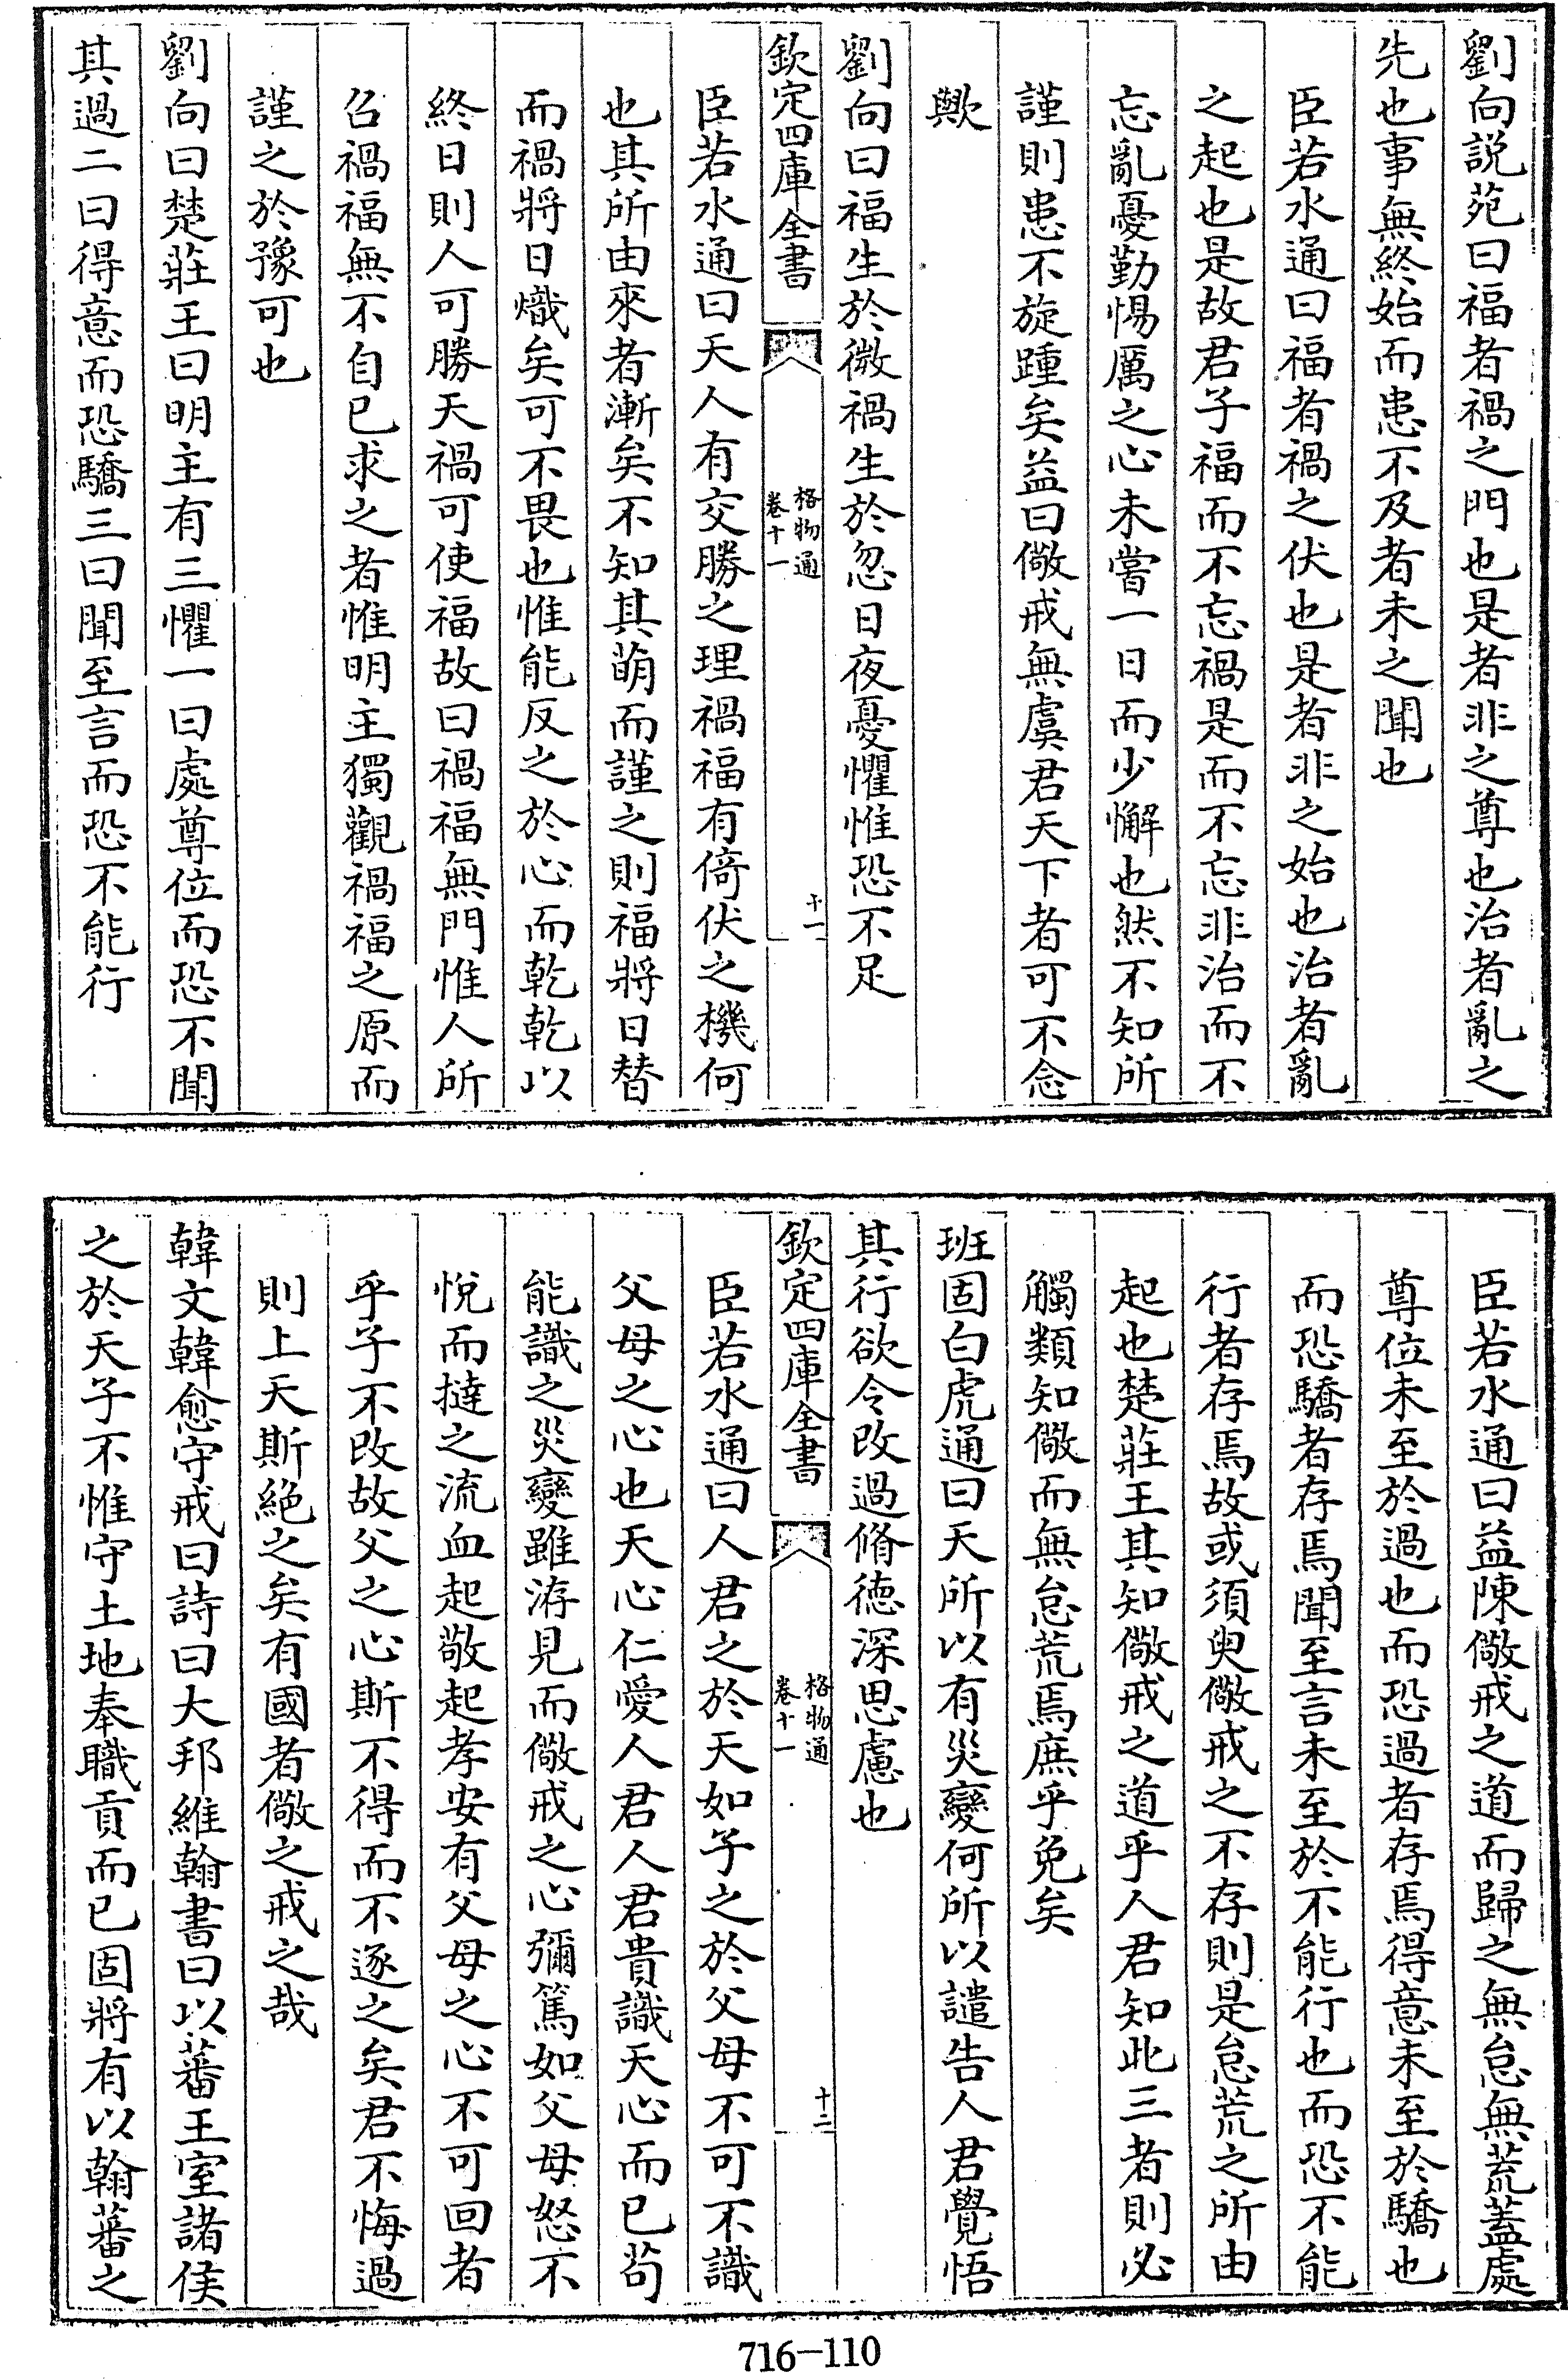 劉向説苑曰福者禍之門也是者非之尊也治者亂之
先也事無終始而患不及者未之聞也
臣若水通曰福者禍之伏也是者非之始也治者亂
之起也是故君子福而不忘禍是而不忘非治而不
忘亂憂勤惕厲之心未嘗一日而少懈也然不知所
謹則患不旋踵矣益曰儆戒無虞君天下者可不念
歟
劉向曰福生於微禍生於忽日夜憂懼惟恐不足
欽定四庫全書
格物通
卷十一
十一
臣若水通曰天人有交勝之理禍福有倚伏之機何
也其所由來者漸矣不知其萌而謹之則福將日替
而禍將日熾矣可不畏也惟能反之於心而乾乾以
終日則人可勝天禍可使福故曰禍福無門惟人所
召禍福無不自已求之者惟明主獨觀禍福之原而
謹之於豫可也
劉向曰楚莊王曰明主有三懼一曰處尊位而恐不聞
其過二曰得意而恐驕三曰聞至言而恐不能行
臣若水通曰益陳儆戒之道而歸之無怠無荒蓋處
尊位未至於過也而恐過者存焉得意未至於驕也
而恐驕者存焉聞至言未至於不能行也而恐不能
行者存焉故或須臾儆戒之不存則是怠荒之所由
起也楚莊王其知儆戒之道乎人君知此三者則必
觸類知儆而無怠荒焉庶乎免矣
班固白虎通曰天所以有災變何所以譴告人君覺悟
其行欲令改過脩德深思慮也
欽定四庫全書
格物通
卷十一
十二
臣若水通曰人君之於天如子之於父母不可不識
父母之心也天心仁愛人君人君貴識天心而已苟
能識之災變雖洊見而儆戒之心彌篤如父母怒不
悅而撻之流血起敬起孝安有父母之心不可回者
乎子不改故父之心斯不得而不逐之矣君不悔過
則上天斯絶之矣有國者儆之戒之哉
韓文韓愈守戒曰詩曰大邦維翰書曰以蕃王室諸侯
之於天子不惟守土地奉職貢而已固將有以翰蕃之
716-110